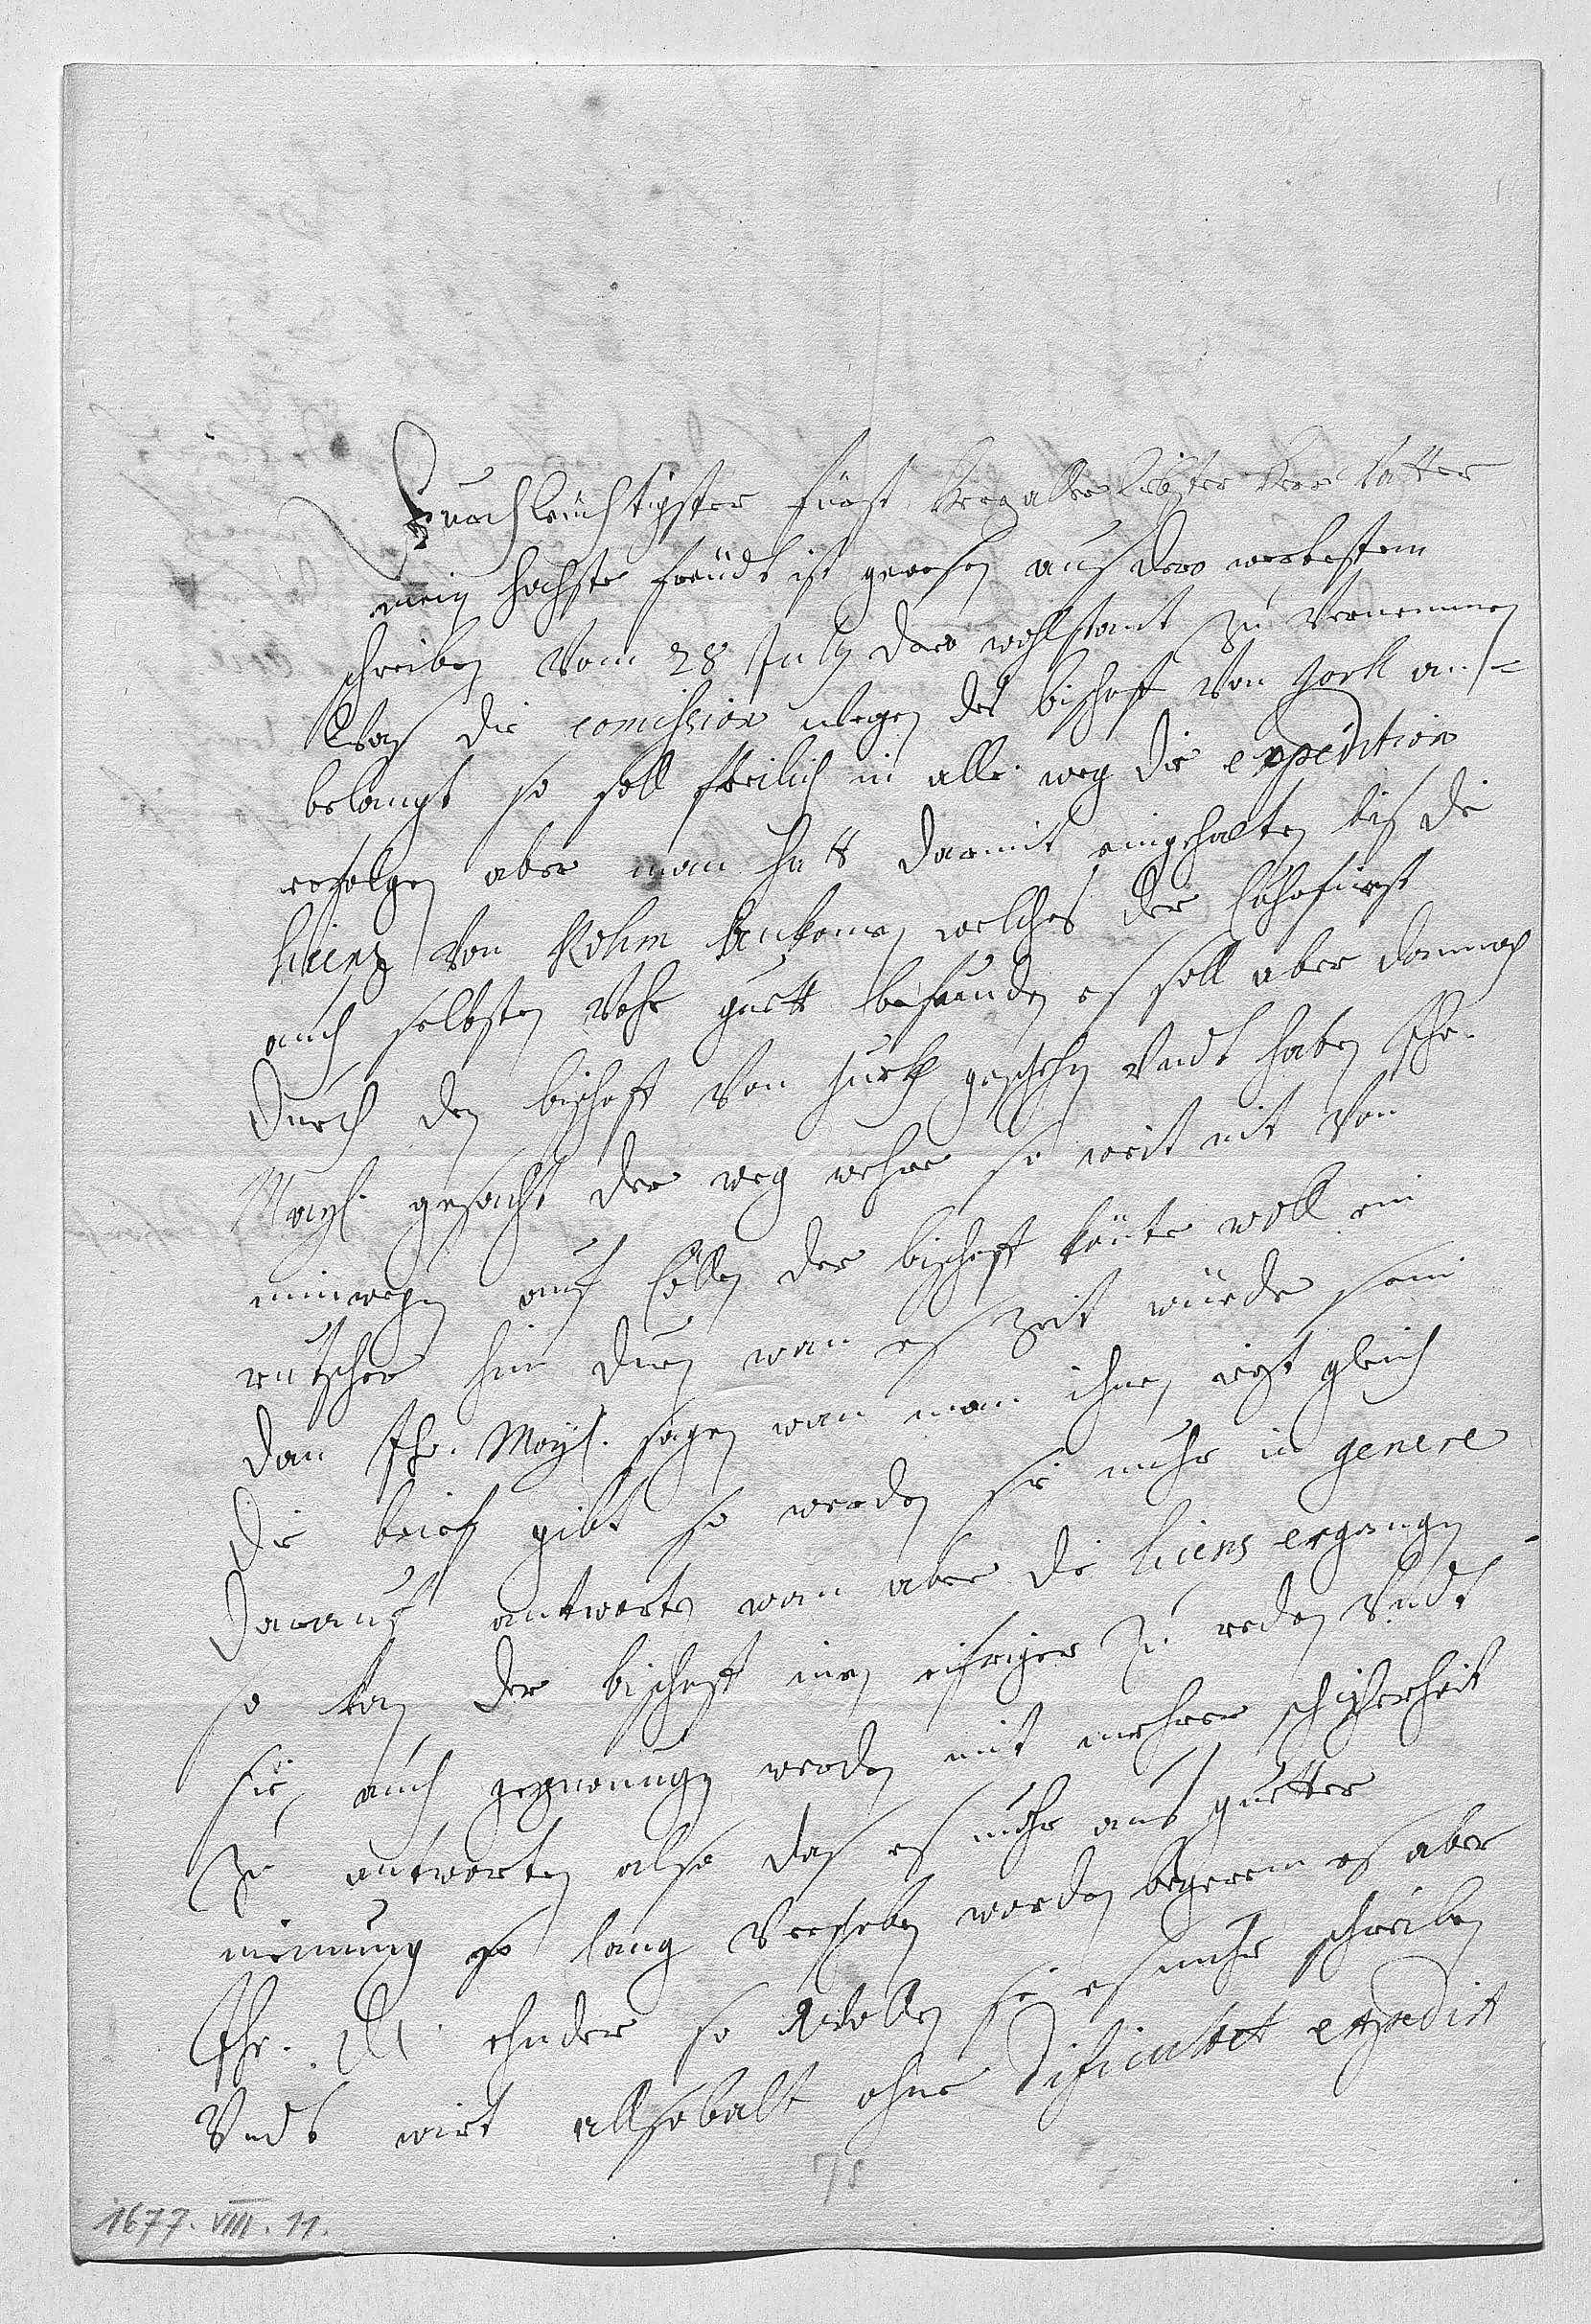 Durchleüchtigster Fürst herzallerliebster herr Vatter
mein höchste freüdt ist gewesen aus dero werthestem
schreiben vom 28 July dero wohlstant zu vernemmen
was die comission wegen des bischoff von gork an=
belangt so soll freilich in alle weg die expedition
erfolgen aber man hatt darmit eingehalten bis die
licenz von Rohm ankomen welches der Churfürst
auch selbsten vohr guett befunden es soll aber dannoch
durch den bischoff von gurk geschehen undt haben Ihr.
Mayt. gesacht der weg wehre so weit nit von
nimwegen auf Cöllen der bischoff könte woll ein
rütscher hin duen wan es Zeit würde sein
dan Ihr. Mayt. sagen wan man ihnen iezt gleich
die brief gibt so werden sie nuhr in genere
darauf antworten wan aber die licens ergangen
so kan der bischoff eifriger zu reden undt
sie auch gezwungen werden mit mehrer schicherheit
zu antworten also das es nuhr aus guetter
meinung so lang verschoben worden begeren es aber
Ihr. Dl. ehnder so wollen sie es nuhr schreiben
undt wirt allsobalt ohne dificultet expedirt
78
1677. VIII. 11.